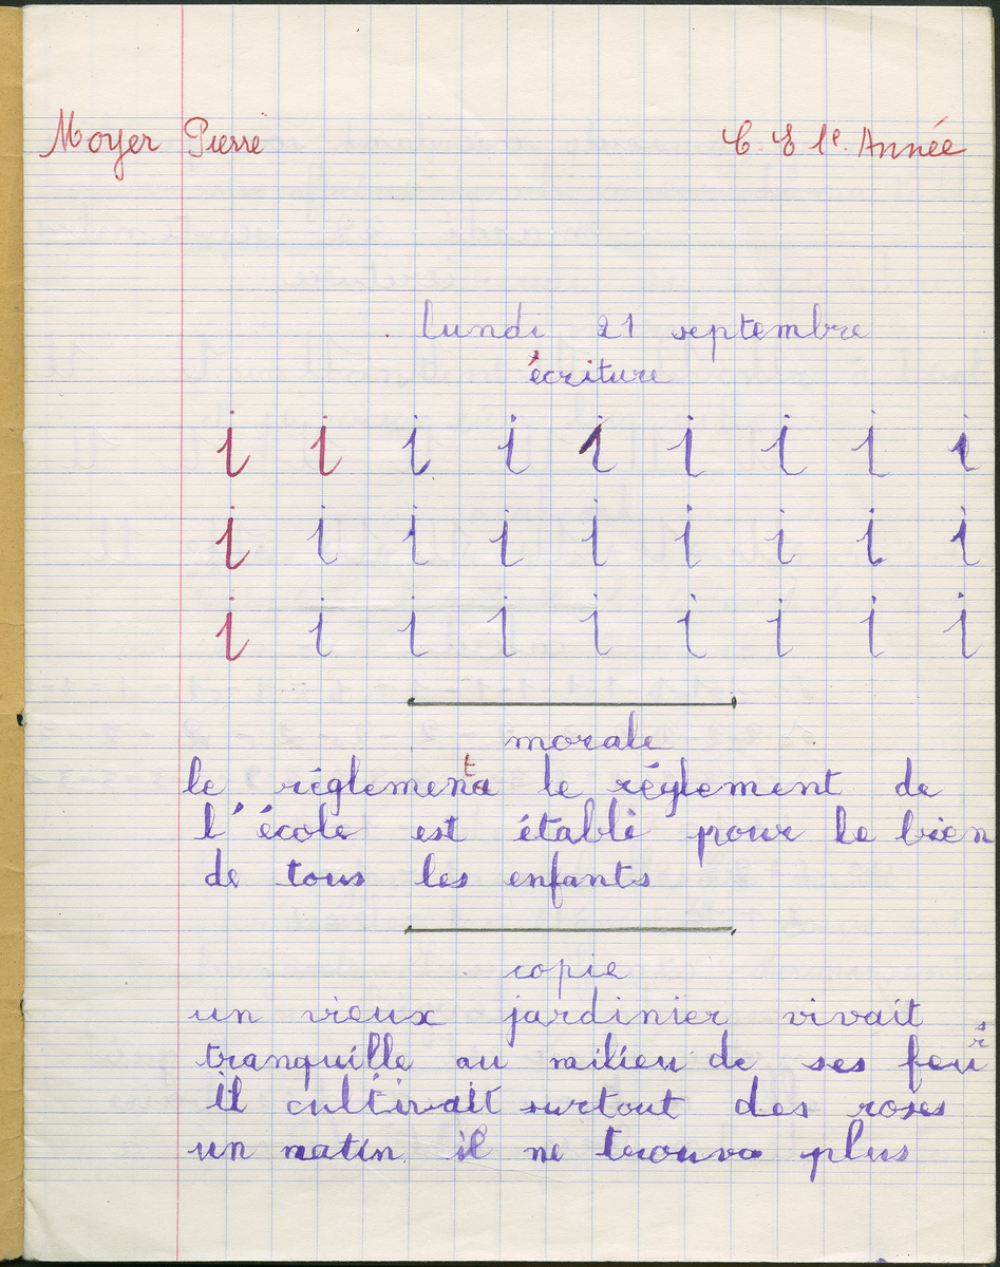 Moyer Pierre C. E 1e. Année
lundi 21 septembre
écriture
i i i i i i i i i
i i i i i i i i i
i i i i i i i i i
morale
le réglement le réglement de
l'école est établi pour le bien
de tous les enfants
copie
un vieux jardinier vivait
tranquille au milieu de ses feurs
il cultivait surtout des roses
un matin il ne trouva plus